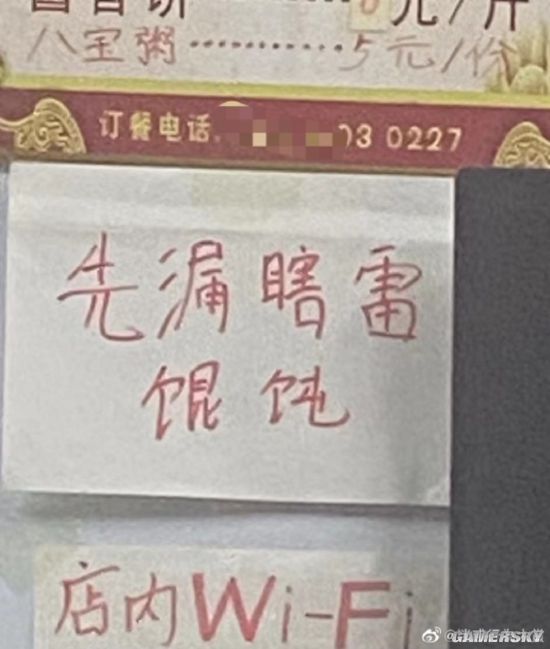 元/斤
八宝粥············5元/份
订餐电话 03 0227
先漏瞎雷
馄饨
店内Wi-Fi
GAMERSKY